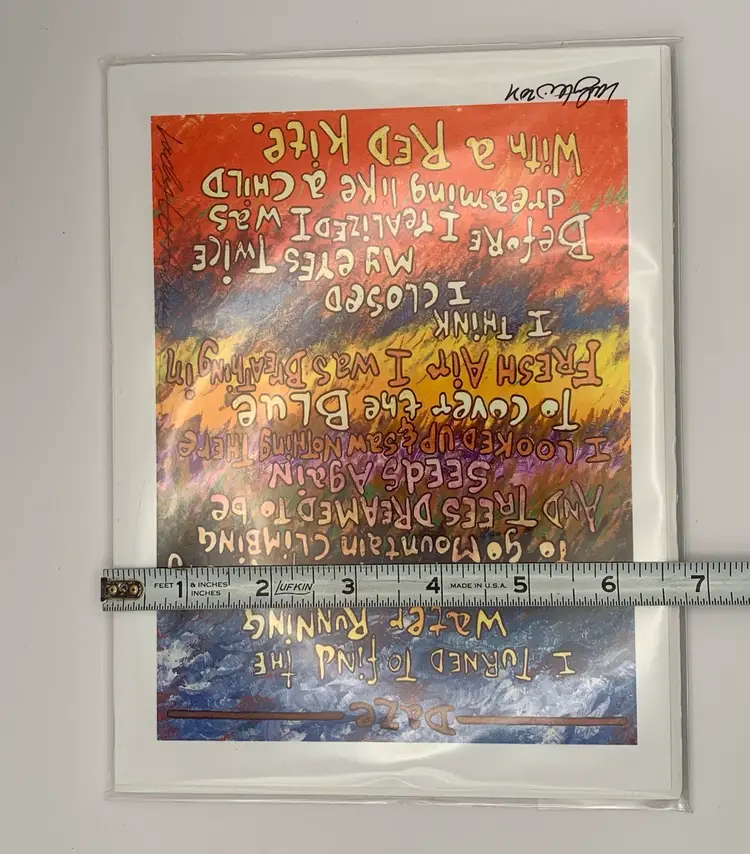 DaZe
I TURNED To find tHE
WateR RUNNING
To go MOUNtaiN CLiMBiNG
AND TREES DREAMED to be
SEEDS AgaiN
I LOOKED UP & SAW NOtHiNg THERE
To COVER the BLUE
FRESH AiR I WAS BREATHiNg in
I THiNK
I CLOSED
My EYES TWiCE
BEFORE I REALiZED I WAS
dreaming like a CHiLD
With a RED Kite.
FEET & INCHES
INCHES
1 2 LUFKIN 3 4 MADE IN U.S.A. 5 6 7